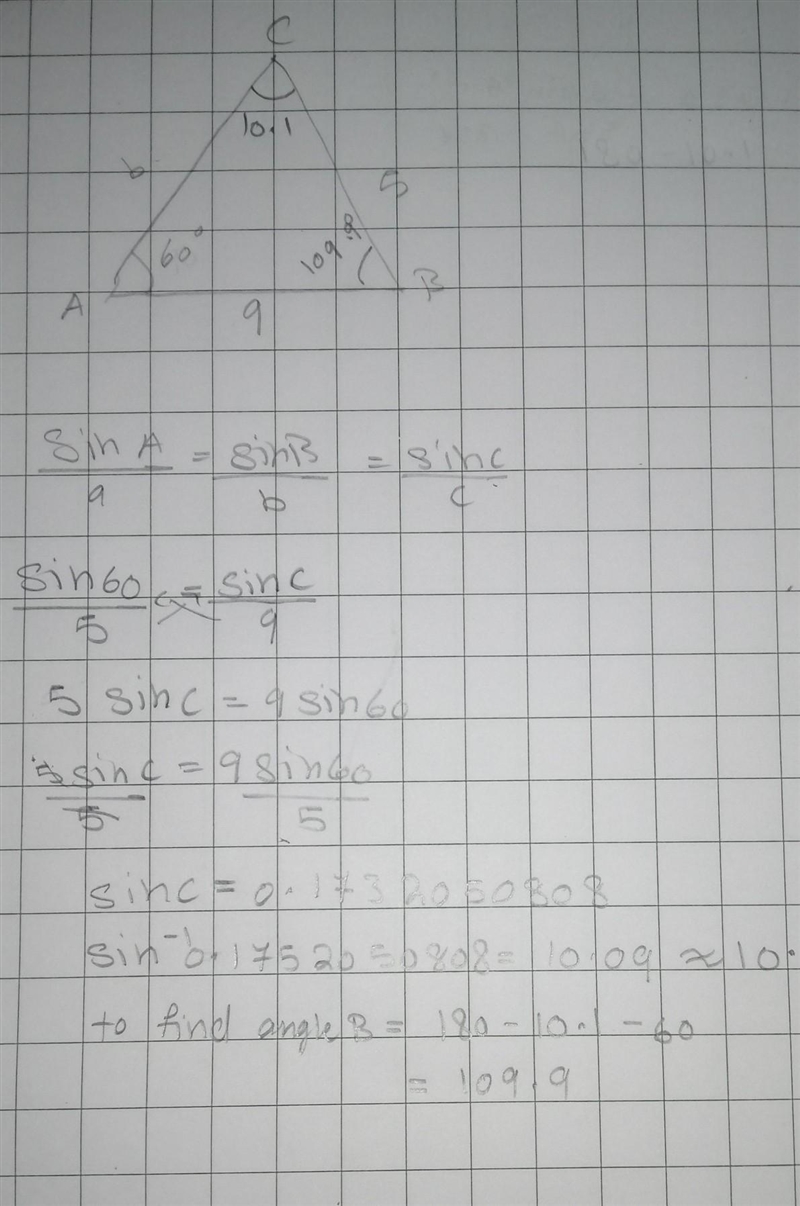 C
10.1
b
5
60°
109.9
A
B
9
sin A/a = sin B/b = sin C/c
sin 60/5 = sin C/9
5 sin C = 9 sin 60
5 sin C/5 = 9 sin 60/5
sin C = 0.1732050808
sin⁻¹ 0.1752050808 = 10.09 ≈ 10.
to find angle B = 180 - 10.1 - 60
= 109.9